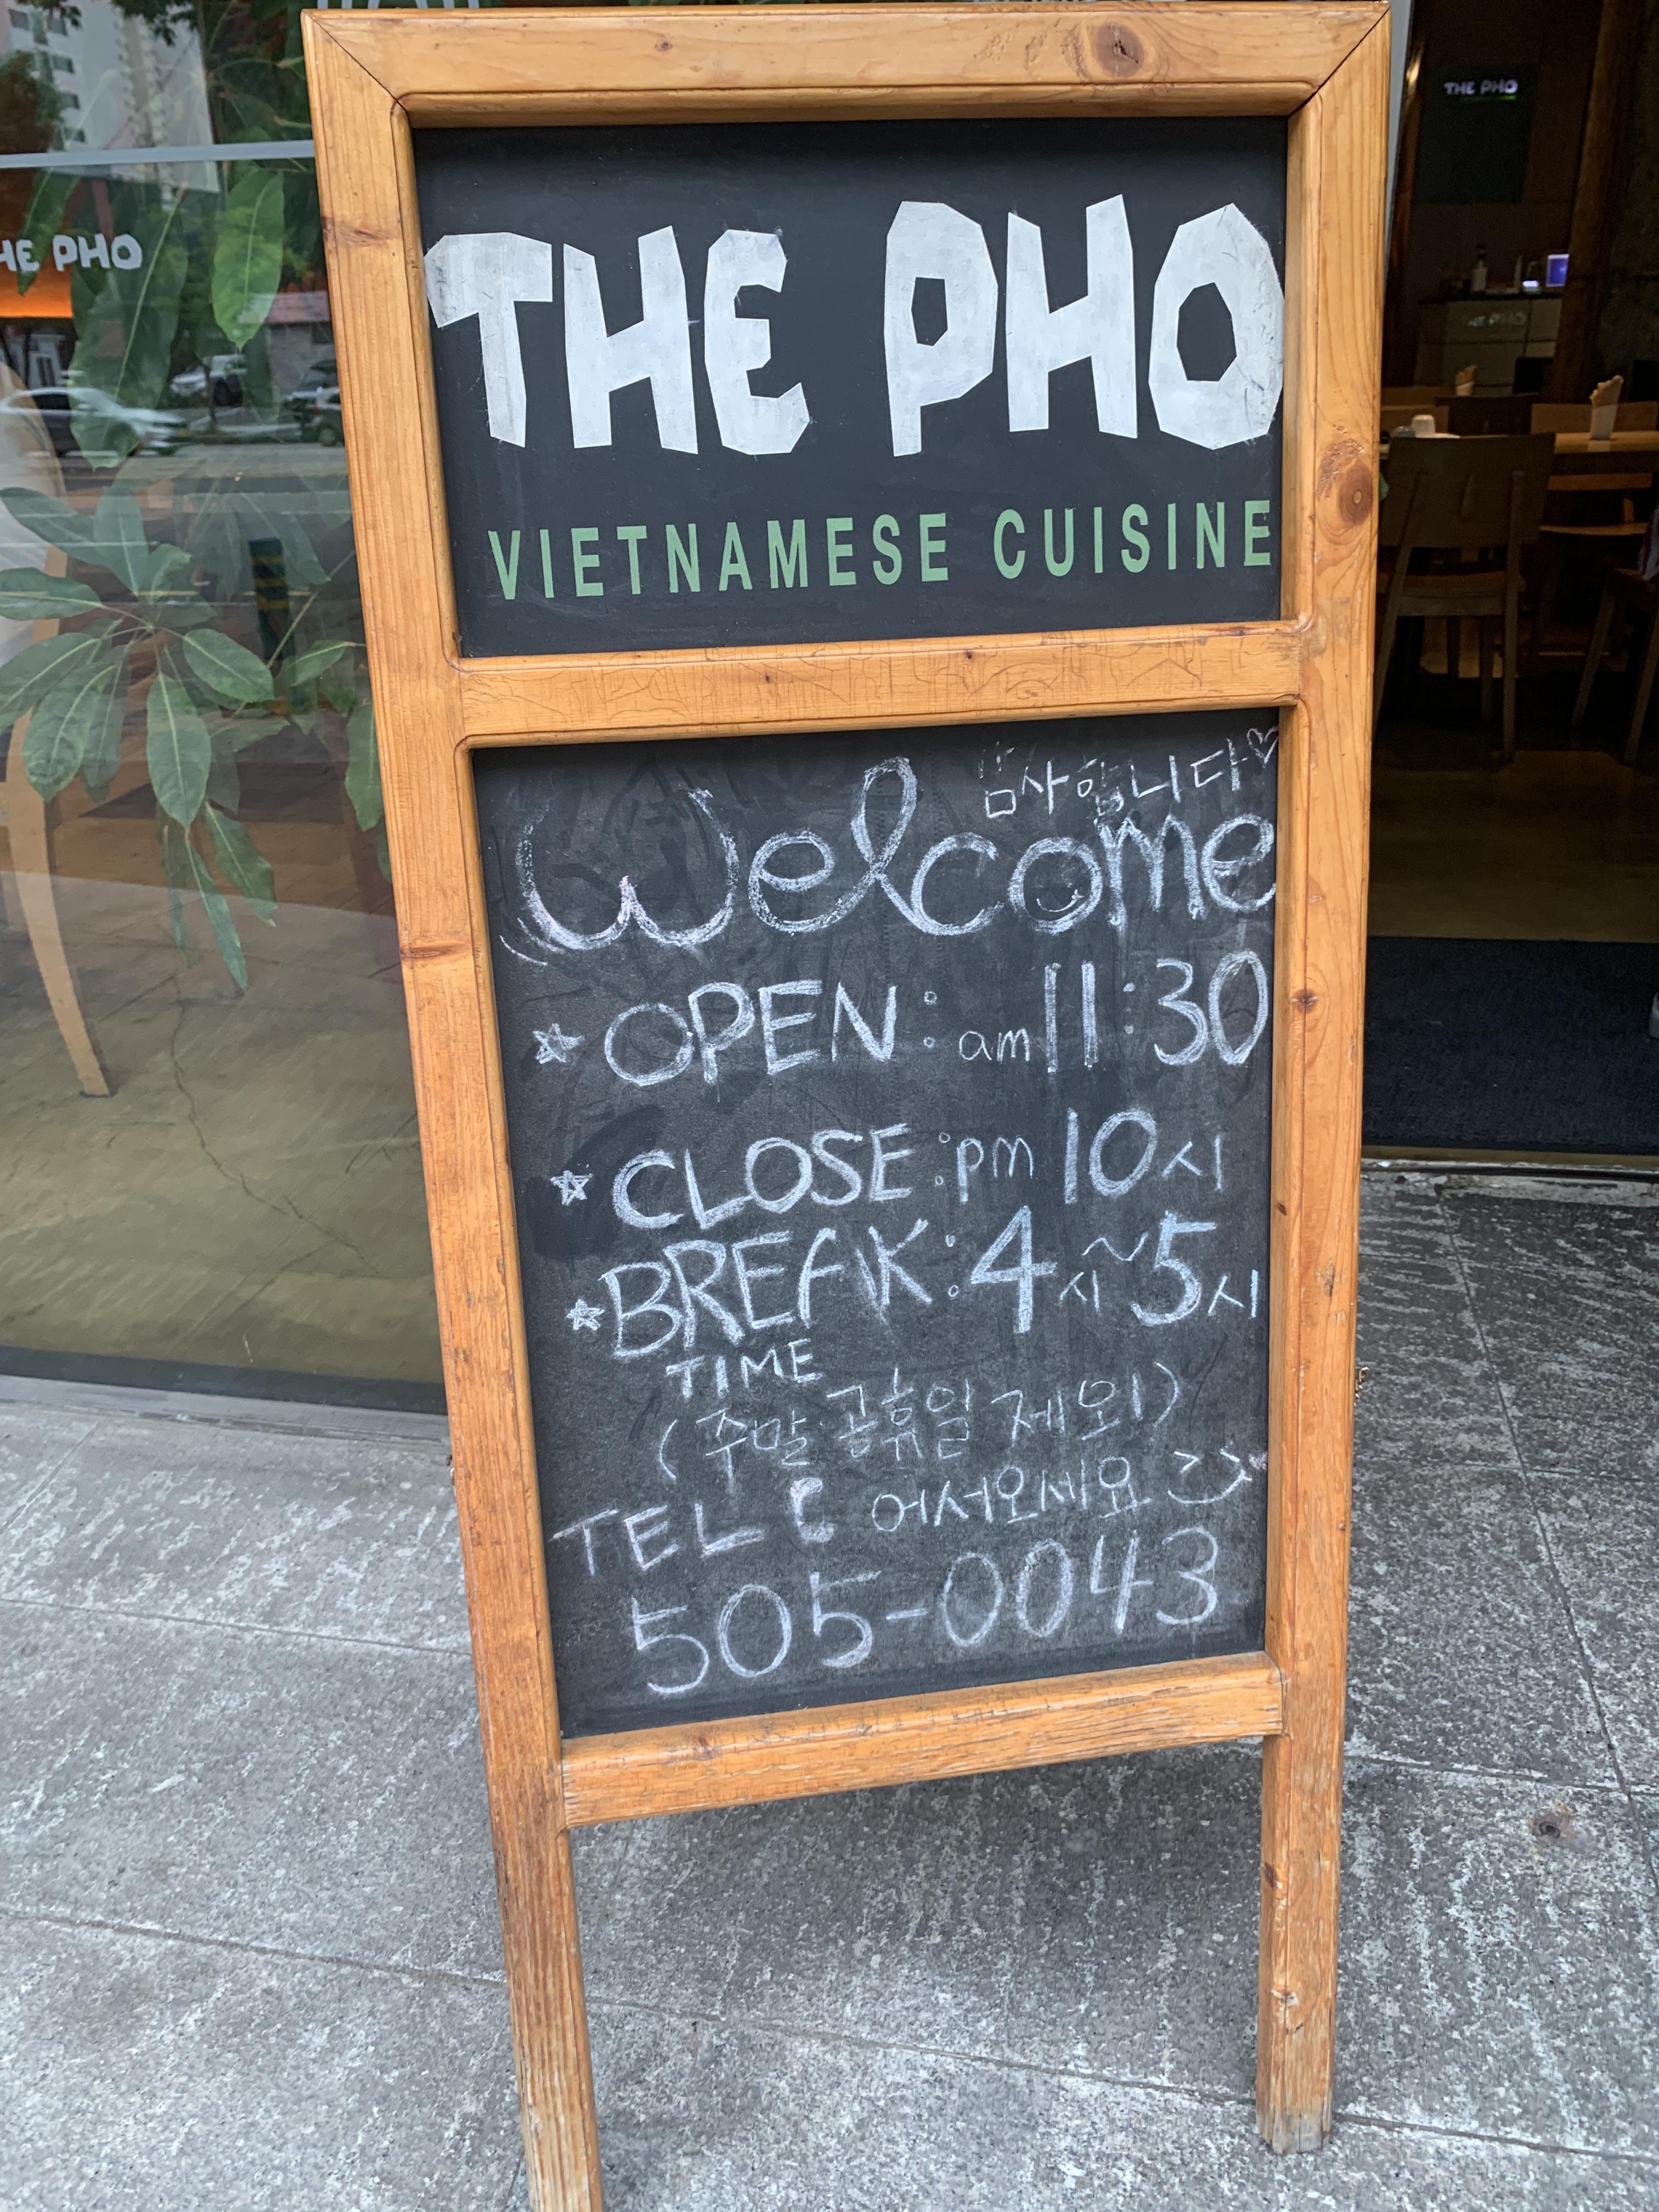 THE PHO
HE PHO
THE PHO
THE PHO
VIETNAMESE CUISINE
감사합니다♡
Welcome
☆ OPEN: am 11:30
☆ CLOSE: pm 10시
☆ BREAK: 4시~5시
TIME
(주말·공휴일 제외)
어서오세요
TEL
505-0043